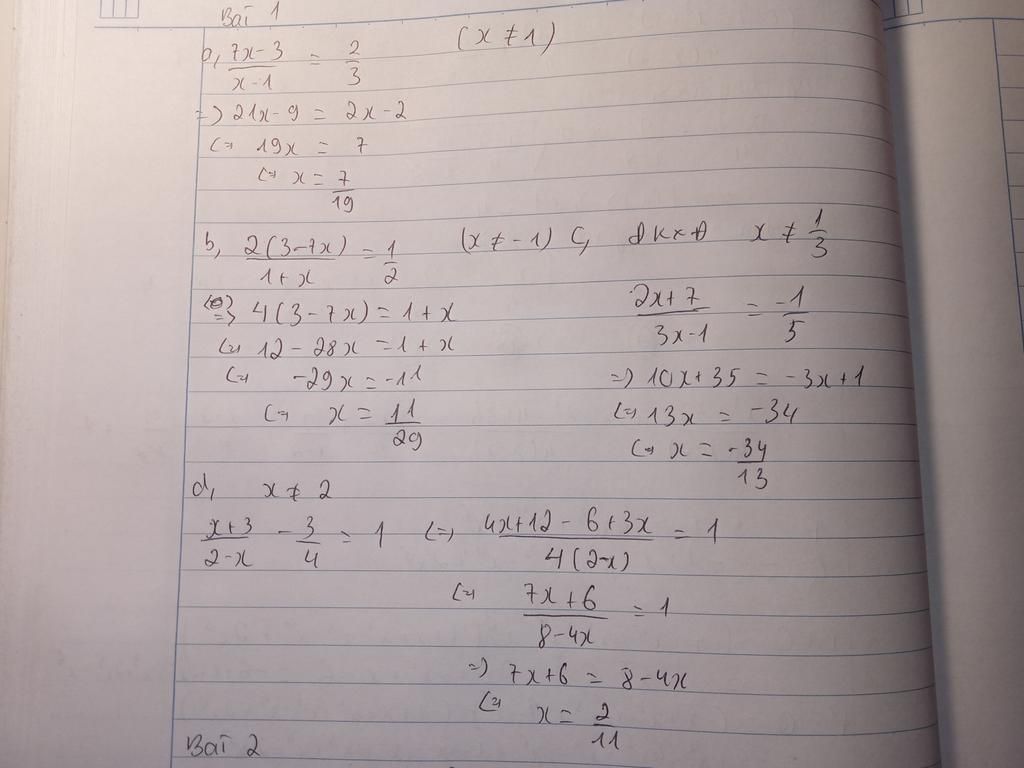 Bài 1
a, (7x-3)/(x-1) = 2/3 (x ≠ 1)
=> 21x-9 = 2x-2
<=> 19x = 7
<=> x = 7/19
b, 2(3-7x)/(1+x) = 1/2 (x ≠ -1)
=> 4(3-7x) = 1+x
<=> 12-28x = 1+x
<=> -29x = -11
<=> x = 11/29
c, ĐKXĐ x ≠ 1/3
(2x+7)/(3x-1) = -1/5
=> 10x+35 = -3x+1
<=> 13x = -34
<=> x = -34/13
d, x ≠ 2
(x+3)/(2-x) - 3/4 = 1 <=> (4x+12-6+3x)/(4(2-x)) = 1
<=> (7x+6)/(8-4x) = 1
=> 7x+6 = 8-4x
<=> x = 2/11
Bài 2